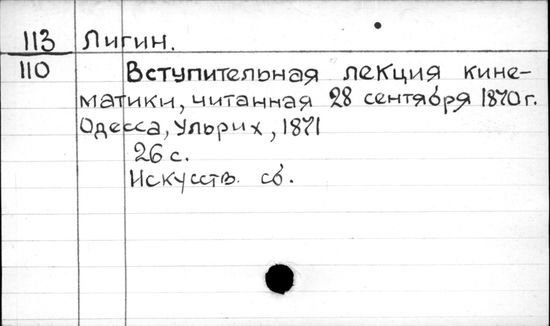 113 Лигин.
110 Вступительная лекция кине-
матики, читанная 28 сентября 1870 г.
Одесса, Ульрих, 1871
26 с.
Искусств. сб.